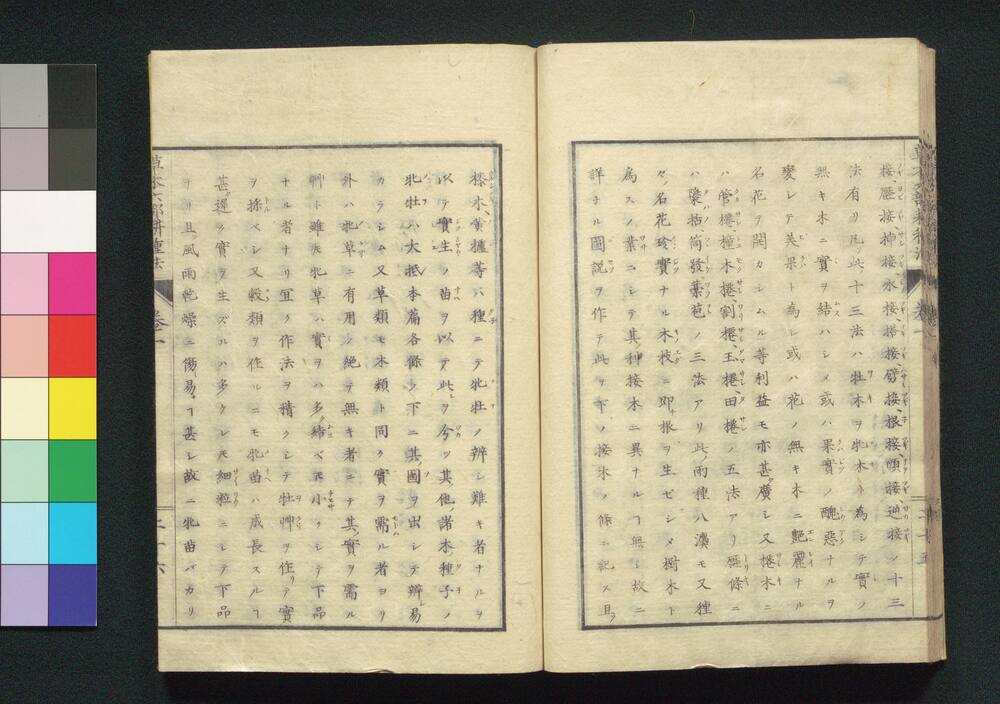 接、壓接、抻接、水接、搭接、劈接、根接、頭接、迸接ノ十三
法有リ凡此ノ十三法ハ牡木ヲ牝木ト為シテ實ノ
無キ木ニ實ヲ結ハシメ或ハ果實ノ醜惡ナルヲ
變シテ美果ト為シ或ハ花ノ無キ木ニ艶麗ナル
名花ヲ開カシムル等利益モ亦甚廣シ又捲木ニ
ハ管捲、撞木捲、割捲、玉捲、田捲ノ五法アリ壓條ニ
ハ聚栝、筒發、藁苞ノ三法アリ此ノ兩種八濩モ又種
々ノ名花珍實ナル木枝ニ即根ヲ生ゼシメ樹木ト
為スノ業ニシテ其ノ種接木ニ異ナルヿ無シ故ニ
詳ナル圖説ヲ作テ此ヲ下ノ接木ノ條ニ記ス且ツ
草木六部耕種法 卷一 二十五
楮木、黄櫨等ハ種ニテ牝牡ノ辨シ難キ者ナルヲ
以テ實生ノ苗ヲ以テ此ヲ分ツ其他ノ諸木ノ種子ノ
牝牡ハ大抵本篇各條ノ下ニ其圖ヲ出シテ辨易
カラシム又草類モ木類ト同ク實ヲ需ル者ヨリ
外ハ牝草ニ有用ノ絶テ無キ者ニテ其ノ實ヲ需ル
艸ト雖モ牝草ハ實ヲハ多ク締ベモ小クシテ下品
ナル者ナリ宜ク作法ヲ精クシテ牡艸ヲ作リテ實
ヲ採ベシ又穀類ヲ作ルニモ牝苗ハ成長スルヿ
甚遲ク實ヲ生ズルハ多クレモ細粒ニシテ下品
ナリ且風雨乾燥ニ傷易キヿ甚シ故ニ牝苗バカリ
草木六部耕種法 卷一 二十六